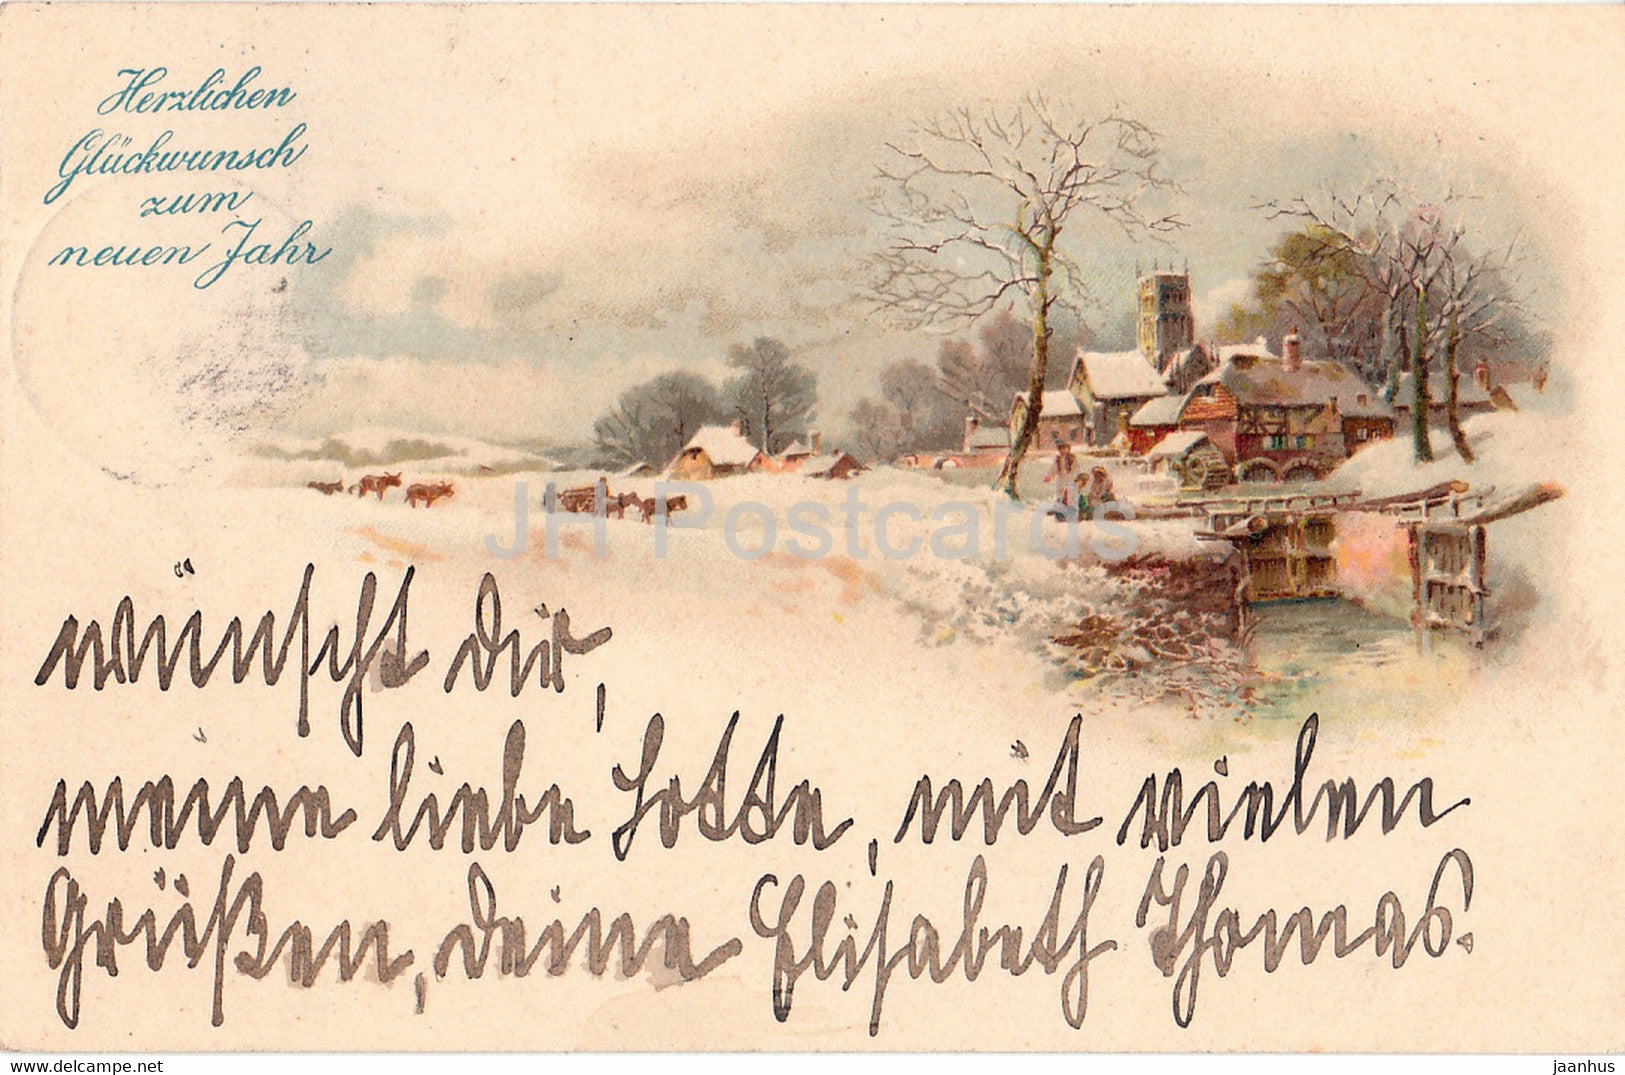 Herzlichen
Glückwunsch
zum
neuen Jahr
JH Postcards
wünscht dir,
meine liebe Lotte, mit vielen
Grüßen, deine Elisabeth Thomas.
delcampe.net
jaanhus